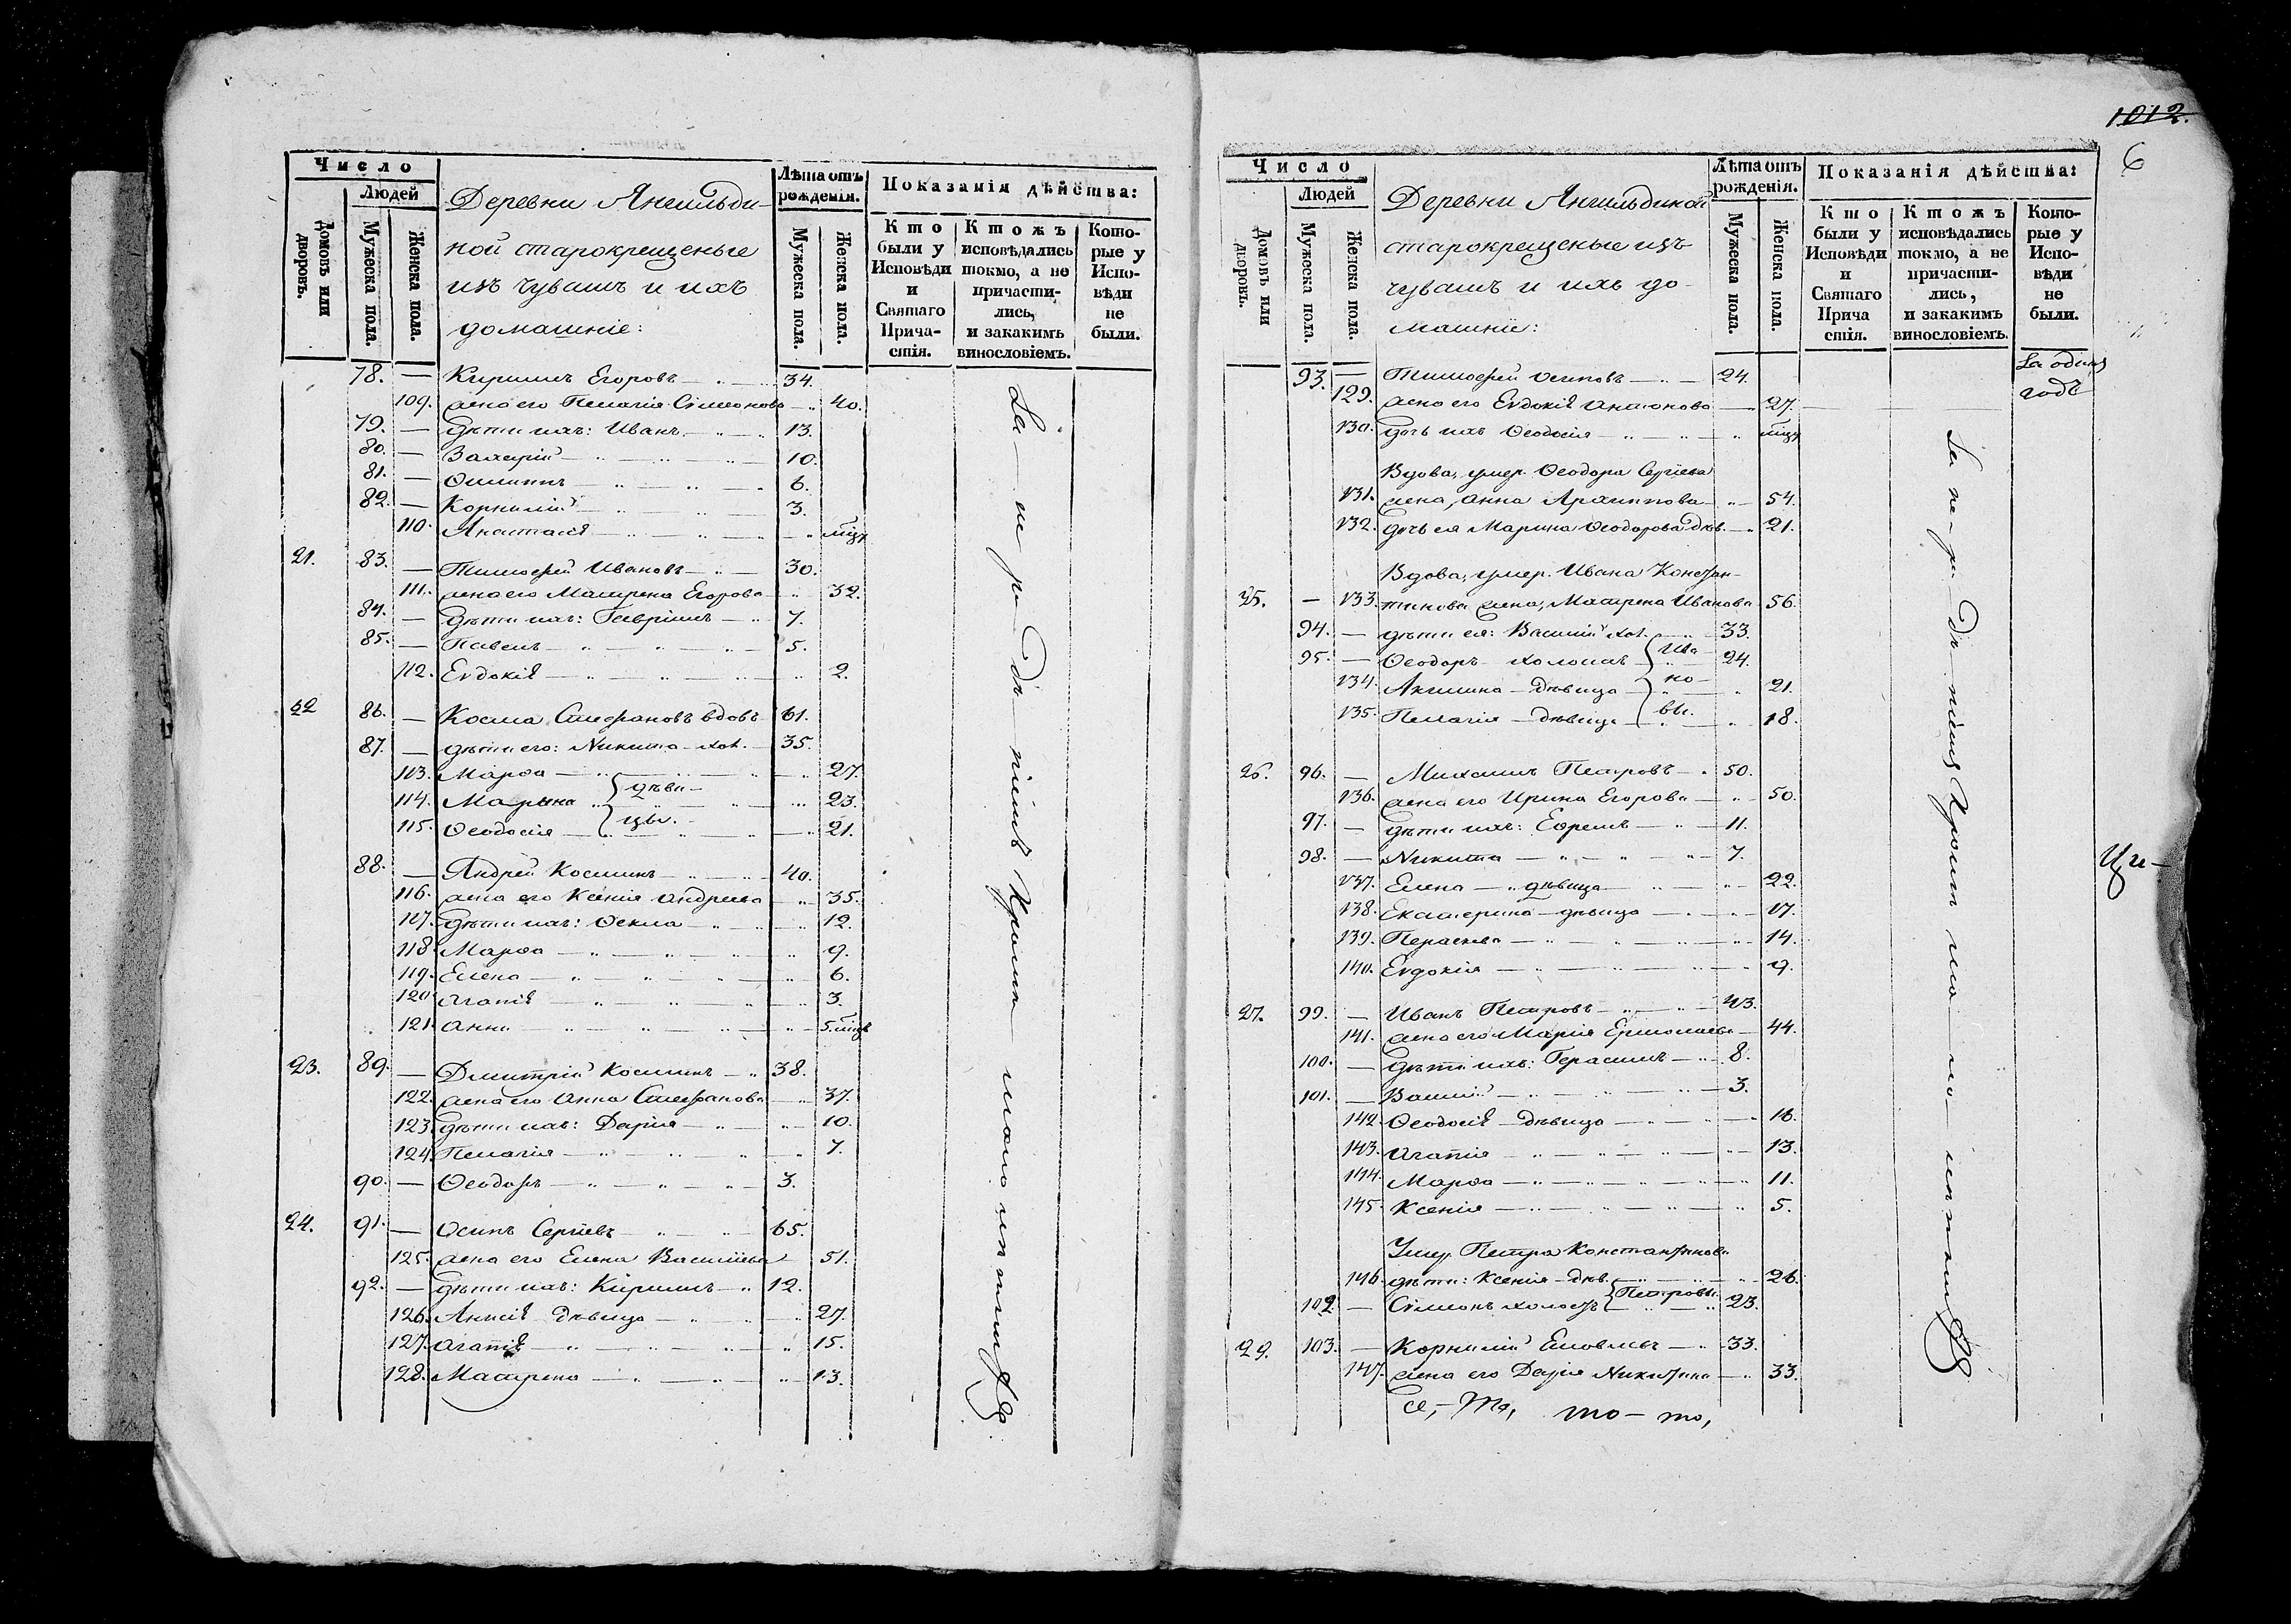 Число
Людей
Домовъ или дворовъ.
Мужеска пола.
Женска пола.
Деревни Янгильди-
ной старокрещеные
изъ чувашъ и ихъ
домашніе:
Лѣта отъ рожденія.
Мужеска пола.
Женска пола.
Показанія дѣйства:
Кто были у Исповѣди и Святаго Причастія.
Ктожъ исповѣдались токмо, а не причастились, и закакимъ винословіемъ.
Которые у Исповѣди не были.
78. — Кирилъ Егоровъ — 34.
109. жена его Пелагія Сімеонова — 40.
79. — дѣти ихъ: Иванъ — 13.
80. — Захарій — 10.
81. — Филипъ — 6.
82. — Корнилій — 3.
110. Анастасія —
21. 83. — Тимофей Ивановъ — 30.
111. жена его Матрена Егорова — 32.
84. — дѣти ихъ: Гавріилъ — 7.
85. — Павелъ — 5.
112. Евдокія — 2.
22 86. — Косма Стефановъ вдовъ 61.
87. — дѣти его: Никита хол. — 35.
113. Марѳа — 27.
114. Марына — 23.
дѣви-
115. Ѳеодосія — 21.
цы.
88. — Андрей Косминъ — 40.
116. жена его Ксенія Андреева — 35.
117. дѣти ихъ: Ѳекла — 12.
118. Марѳа — 9.
119. Елена — 6.
120. Агапія — 3.
121. Анна — 5.
23. 89. — Дмитрій Косминъ — 38.
122. жена его Анна Стефанова — 37.
123. дѣти ихъ: Дарія — 10.
124. Пелагія — 7.
90. — Ѳеодоръ — 3.
24. 91. — Осипъ Сергіевъ — 65.
125. жена его Елена Василіева 51.
92. — дѣти ихъ: Кирилъ — 12.
126. дѣвица — 27.
127. Агапія — 15.
128. Матрена — 13.
1012.
6
Число
Людей
Домовъ или дворовъ.
Мужеска пола.
Женска пола.
Деревни Янгильдиной
старокрещеные изъ
чувашъ и ихъ до-
машніи:
Лѣта отъ рожденія.
Мужеска пола.
Женска пола.
Показанія дѣйства:
Кто были у Исповѣди и Святаго Причастія.
Ктожъ исповѣдались токмо, а не причастились, и закакимъ винословіемъ.
Которые у Исповѣди не были.
93. — Тимофей Осиповъ — 24.
129. жена его Евдокія Антонова — 27.
130. дочь ихъ Ѳеодосія —
Вдова, умер. Ѳеодора Сергіева
131. жена, Анна Архиппова — 54.
132. дочь ея Марина Ѳеодорова дѣв. — 21.
Вдова, умер. Ивана Констан-
25. — 133. тинова жена, Матрена Иванова 56.
94. — дѣти ея: Василій хол. — 33.
95. — Ѳеодоръ холостъ Ива- 24.
134. Акилина — дѣвица но- 21.
135. Пелагія — дѣвица вы. 18.
26. 96. — Михаилъ Петровъ — 50.
136. жена его Ирина Егорова — 50.
97. — дѣти ихъ: Ефремъ — 11.
98. — Никита — 7.
137. Елена — дѣвица — 22.
138. Екатерина — дѣвица — 17.
139. Параскева — 14.
140. Евдокія — 9.
27. 99. — Иванъ Петровъ — 43.
141. жена его Марія Ермолаева — 44.
100. — дѣти ихъ: Герасимъ — 8.
101. — Василій — 3.
142. Ѳеодосія — дѣвица — 16.
143. Агапія — 13.
144. Марѳа — 11.
145. Ксенія — 5.
Умер. Петра Константинова
146. дѣти: Ксенія — дѣв. — 26.
Петровы
102. — Сімеонъ холостъ 23.
29. 103. — Корнилій — 33.
147. жена его Дарія Никитина — 33.
За одинъ
годъ